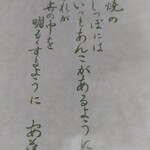 焼の
しっぽには
いつもあんこがあるように
れが
世の中を
明るくするように